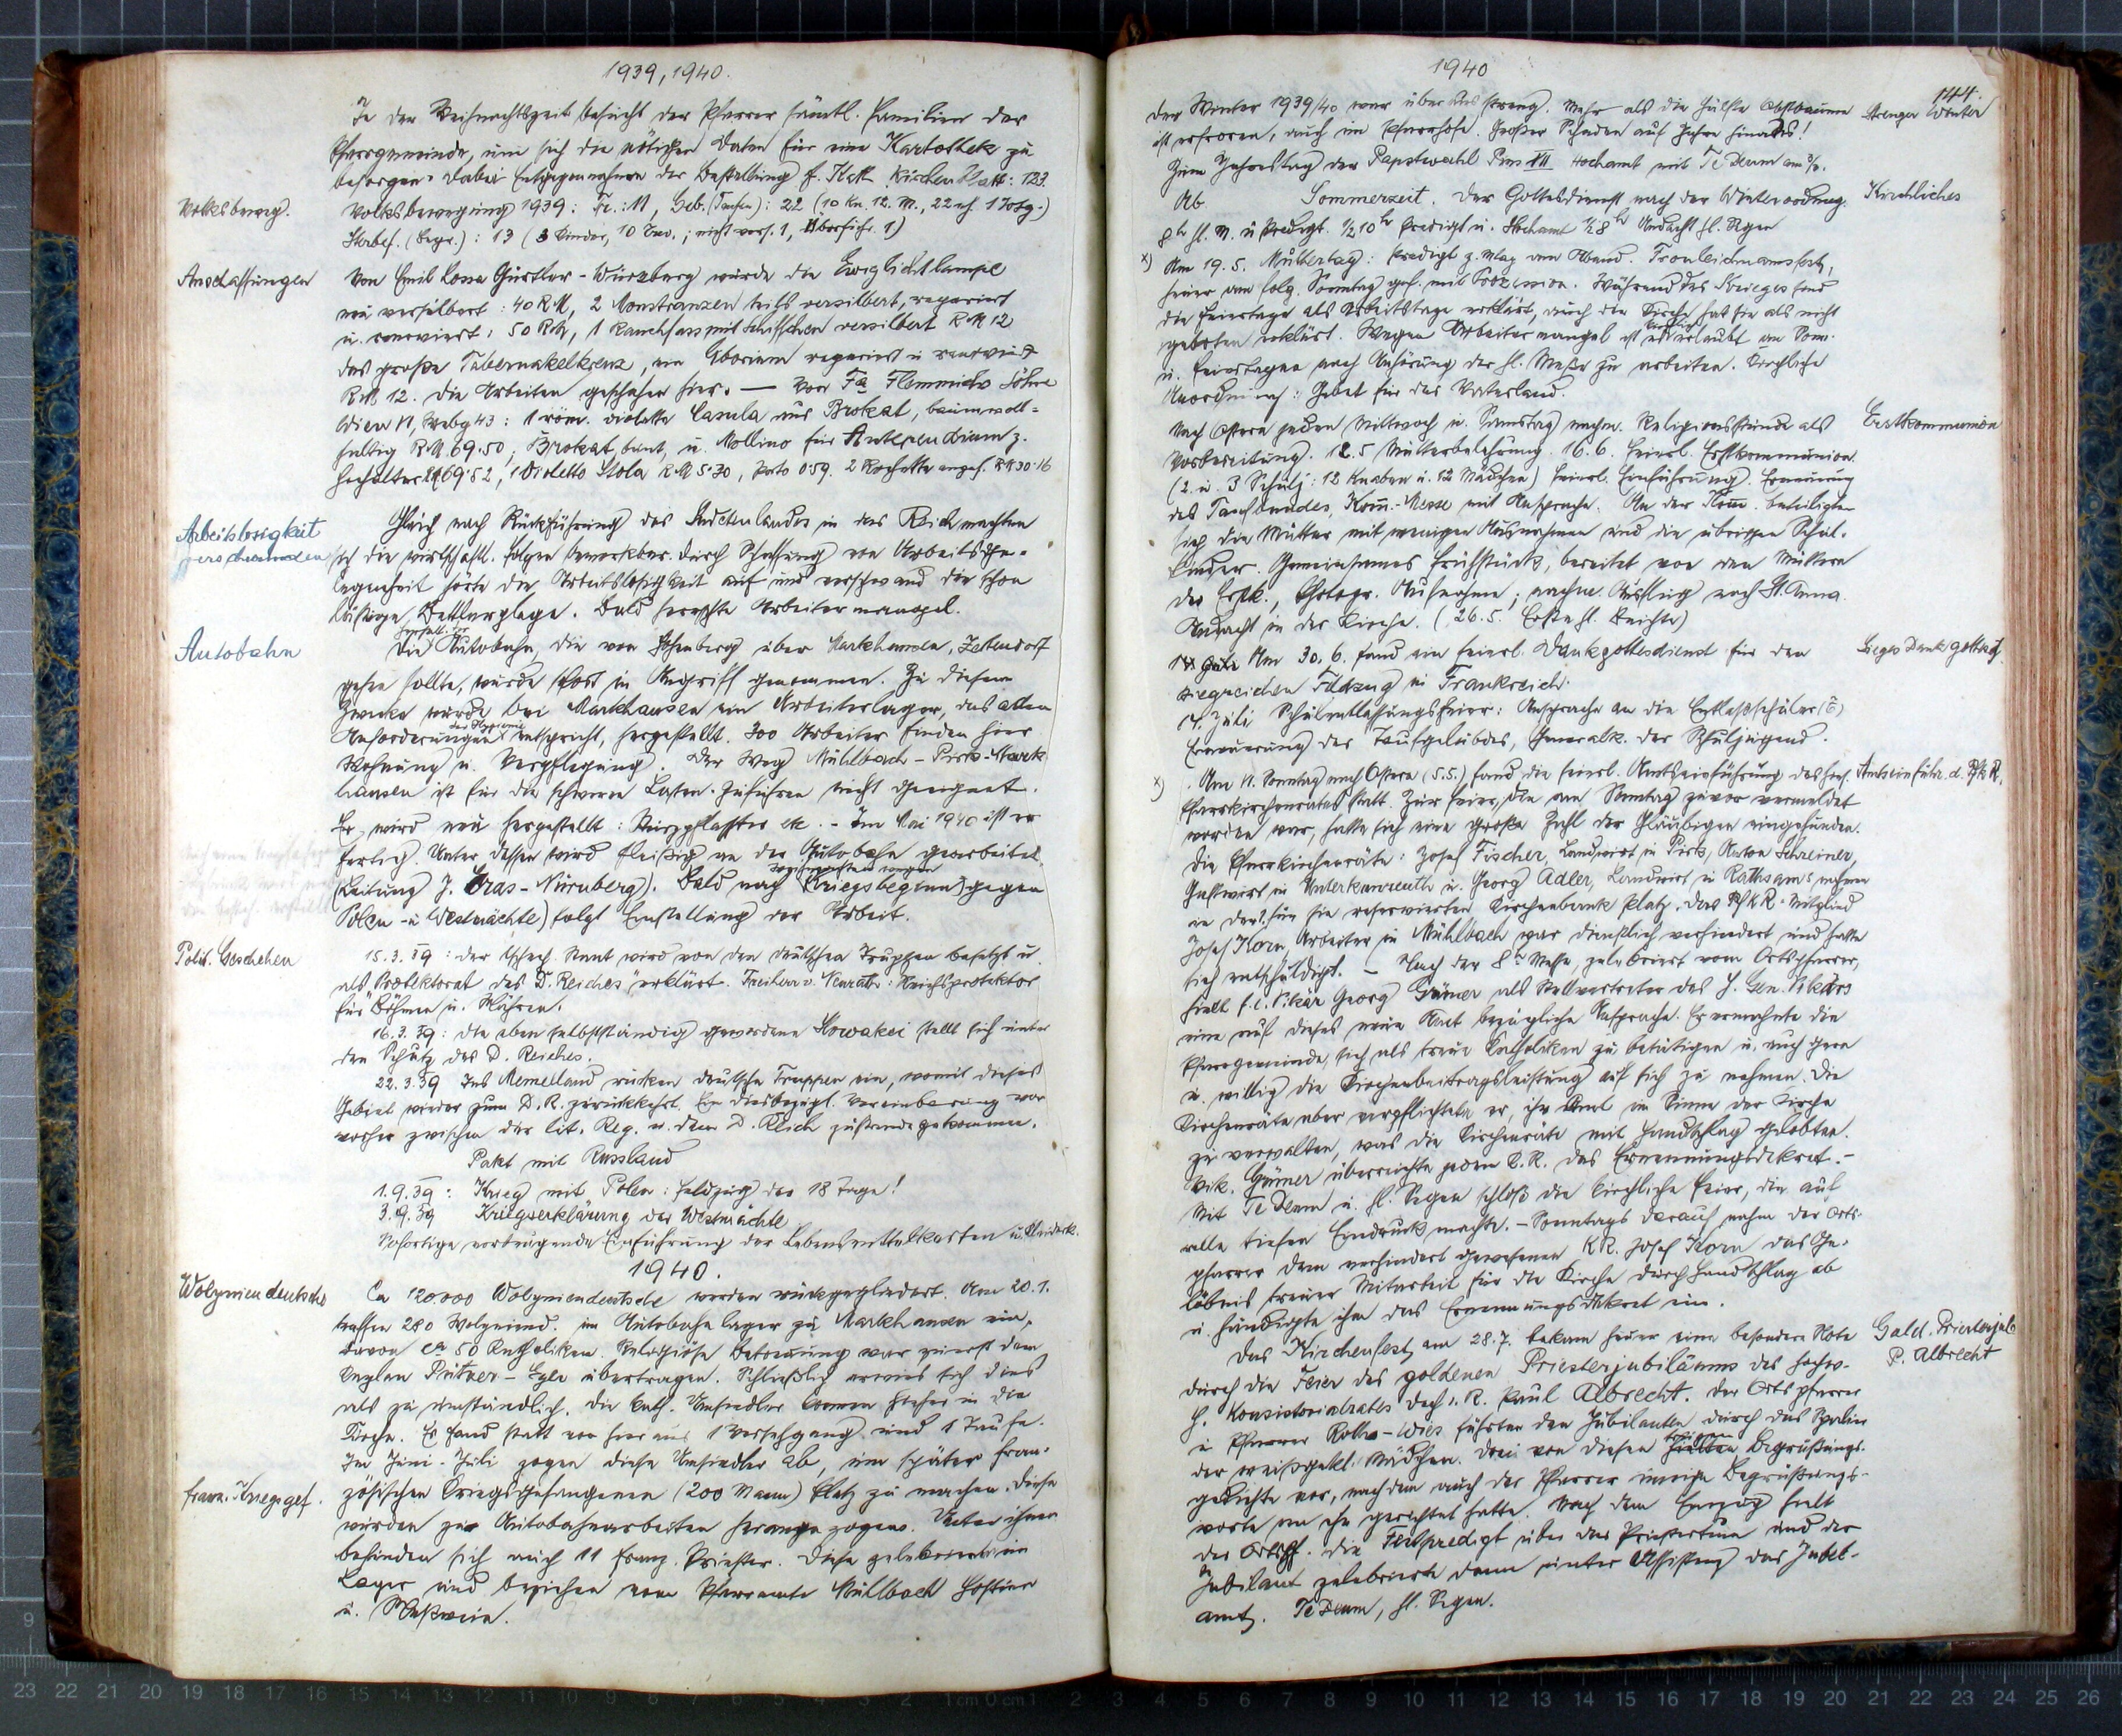 1939, 1940.
In der Weihnachtszeit besucht der Pfarrer sämtl. Familien der
Pfarrgemeinde, um sich die nötigen Daten für eine Kartothek zu
besorgen. Dabei Entgegennahme der Bestellung f. Kath. Kirchenblatt: 123.
Volksbeweg.
Volksbewegung 1939: Tr.: 11, Geb. (Taufen): 22 (10 Kn. 12. M., 22 eh. 1 Totg.)
Sterbef. (Begr.): 13 (3 Kinder, 10 Erw.; nicht vers. 1, Überführ. 1)
Anschaffungen
Von Emil Gürtler-Würzburg wurde die Ewiglichtlampe
neu versilbert: 40 RM, 2 Monstranzen teils versilbert, repariert
u. renoviert: 50 RM, 1 Rauchfass mit Schiffchen versilbert RM 12
das große Tabernakelkreuz, ein Ciborium repariert u renoviert
RM 12. Die Arbeiten geschahen hier. — Von Fa Flemmichs Söhne
Wien VI, Webg 43: 1 röm. violette Casula aus Brokat, baumwoll-
haltig RM 69.50; Brokat, bunt, u. Mollino für Antependium z.
Hochaltar RM 69.52, 1 violette Stola RM 5.30, Porto 0.59. 2 Rochette angesch. RM 30.16
Arbeitslosigkeit
verschwunden
Gleich nach Rückführung des Sudetenlandes in das Reich machten
sich die wirtschaftl. Folgen bemerkbar. Durch Schaffung von Arbeitsge-
legenheit hörte die Arbeitslosigkeit auf und verschwand die schon
lästige Bettlerplage. Bald herrschte Arbeitermangel.
Autobahn
Die Autobahn, die von Schönberg über Markhausen, Zettendorf
gehen sollte, wurde in Angriff genommen. Zu diesem
Zwecke wurde bei Markhausen ein Arbeiterlager, das allen
Anforderungen der Hygiene entspricht, hergestellt. 300 Arbeiter finden hier
Wohnung u. Verpflegung. Der Weg Mühlbach-Pirk-Mark-
hausen ist für die schweren Lasten-Zufuhren nicht geeignet.
Er wird neu hergestellt: Steinpflaster etc. - Im Mai 1940 ist er
fertig. Unter dessen wird fleißig an der Autobahn gearbeitet.
(Leitung J. Bras-Nürnberg). Bald nach Kriegsbeginn gegen
Polen - u Westmächte) folgt Einstellung der Arbeit.
Polit. Geschehen
15.3.39: der tschech. Staat wird von den deutschen Truppen besetzt u.
als Protektorat des D. Reiches" erklärt. Freiherr v. Neurath: Reichsprotektor
für Böhmen u. Mähren.
16.3.39: die eben selbstständig gewordene Slowakei stellt sich unter
den Schutz des D. Reiches.
22.3.39 Ins Memelland rücken deutsche Truppen ein, womit dieses
Gebiet wieder zum D. R. zurückkehrt. Ein diesbezügl. Vereinbarung war
vorher zwischen der lit. Reg. u. dem D. Reich zustande gekommen.
Pakt mit Russland
1.9.39: Krieg mit Polen: Feldzug der 18 Tage!
3.9.39 Kriegserklärung der Westmächte
Sofortige vorbeugende Einführung der Lebensmittelkarten u. Kleiderk.
1940.
Wolyniendeutsche
Ca 120.000 Wolyniendeutsche werden rückgegliedert. Am 20.1.
treffen 280 Wolyniend. im Autobahnlager zu Markhausen ein,
davon ca 50 Katholiken. Religiöse Betreuung war zuerst dem
Kaplan Pützer-Eger übertragen. Schließlich erwies sich dies
als zu umständlich. Die kath. Umsiedler kamen hieher in die
Kirche. Es fand statt von hier aus 1 Versehgang und 1 Taufe.
Im Juni-Juli zogen diese Umsiedler ab, um später fran-
franz. Kriegsgef.
zösischen Kriegsgefangenen (200 Mann) Platz zu machen. Diese
wurden zu Autobahnarbeiten herangezogen. Unter ihnen
befinden sich auch 11 franz. Priester. Diese zelebrieren im
Lager und beziehen vom Pfarramte Mühlbach Hostien
u. Meßwein.
1940
144.
Der Winter 1939/40 war überaus streng. Mehr als die Hälfte Obstbäume
Strenger Winter
ist erfroren, auch im Pfarrhofe. Großer Schaden auf Jahre hinaus!
Zum Jahrestag der Papstwahl Pius XII. Hochamt mit Te Deum am 3/3.
Kirchliches
Ab Sommerzeit. Der Gottesdienst nach der Winterordnung.
8h hl. M. u Predigt. 1/2 10h Predigt u. Hochamt 1/2 8h Andacht hl. Segen
x) Am 19.5. Muttertag: Predigt z. Mtag am Abend. Fronleichnamsfest,
Feier am folg. Sonntag geh. mit Prozession. Während des Krieges sind
die Feiertage als Arbeitstage erklärt, auch die Kirche hat sie als nicht
geboten erklärt. Wegen Arbeitermangel ist es erlaubt an Sonn-
u. Feiertagen nach Anhörung der hl. Messe zu arbeiten. Kirchliche
Anordnung: Gebet für das Vaterland.
Erstkommunion
Nach Ostern jeden Mittwoch u. Samstag nachm. Religionsstunde als
Vorbereitung. 12.5 Mütterbelehrung. 16.6. Feierl. Erstkommunion
(2. u. 3 Schulj: 12 Knaben u. 12 Mädchen) Feierl. Einführung. Erneuerung
des Taufbundes, Kom.-Messe mit Ansprache. An der Kom. beteiligten
sich die Mütter mit wenigen Ausnahmen und die übrigen Schul-
kinder. Gemeinsames Frühstück, bereitet von den Müttern
der Erstk., Photogr. Aufnahme; nachm. Ausflug nach St. Anna.
Andacht in der Kirche. (26.5. Erste hl. Beichte)
Sieges Dankgottesd.
Am 30.6. fand ein feierl. Dankgottesdienst für den
siegreichen Feldzug in Frankreich.
Juli Schulentlassungsfeier: Ansprache an die Entlaßschüler
Erneuerung des Taufgelübdes, Generalk. der Schuljugend.
Amtseinführ. d. PfkR.
x) Am VI. Sonntag nach Ostern (5.5.) fand die feierl. Amtseinführung des
Pfarrkirchenrates statt. Zur Feier, die am Sonntag zuvor vermeldet
worden war, hatte sich eine große Zahl der Gläubigen eingefunden.
Die Pfarrkirchenräte: Josef Fischer, Landwirt in Pirk, Anton Schreiner,
Gastwirt in Unterkunreuth u. Georg Adler, Landwirt in Rathsam nehmen
in der f. für sie reservierten Kirchenbank Platz. Das PfkR-Mitglied
Josef Korn, Arbeiter in Mühlbach war dienstlich verhindert und hatte
sich entschuldigt. - Nach der 8h Messe, zelebriert vom Ortspfarrer,
hielt b. Vikär Georg Gärner als Stellvertreter des H. Gen. Vikärs
eine auf dieses neue Amt bezügliche Ansprache. Er ermahnte die
Pfarrgemeinde, sich als treue Katholiken zu betätigen u. auch gern
u. willig die Kirchenbeitragsleistung auf sich zu nehmen. Die
Kirchenräte aber verpflichtete er, ihr Amt im Sinne der Kirche
zu verwalten, was die Kirchenräte mit Handschlag gelobten.
Vik. Gärner überreichte jedem K.R. das Ernennungsdekret. -
Mit Te Deum u. hl. Segen schloß die kirchliche Feier, die auf
alle tiefen Eindruck machte. - Sonntags darauf nahm der Orts-
pfarrer dem verhindert gewesenen KR. Josef Korn das Ge-
löbnis treuer Mitarbeit für die Kirche durch Handschlag ab
u. händigte ihm das Ernennungsdekret ein.
Gold. Priesterjub
P. Albrecht
Das Kirchenfest, am 28.7. bekam heuer eine besondere Note
durch die Feier des goldenen Priesterjubiläums des hochw.
H. Konsistorialrates Dech. i. R. Paul Albrecht. Der Ortspfarrer
u Pfarrer Roth-Wies führten den Jubilanten durch das Spalier
der weißgekl. Mädchen. Drei von diesen trugen Begrüßungs-
gedichte vor, nachdem auch der Pfarrer innige Begrüßungs-
worte an ihn gerichtet hatte. Nach dem Einzug hielt
der Ortspf. die Festpredigt über das Priestertum und der
Jubilant zelebrierte dann unter Assistenz das Jubel-
amt. Te Deum, hl. Segen.